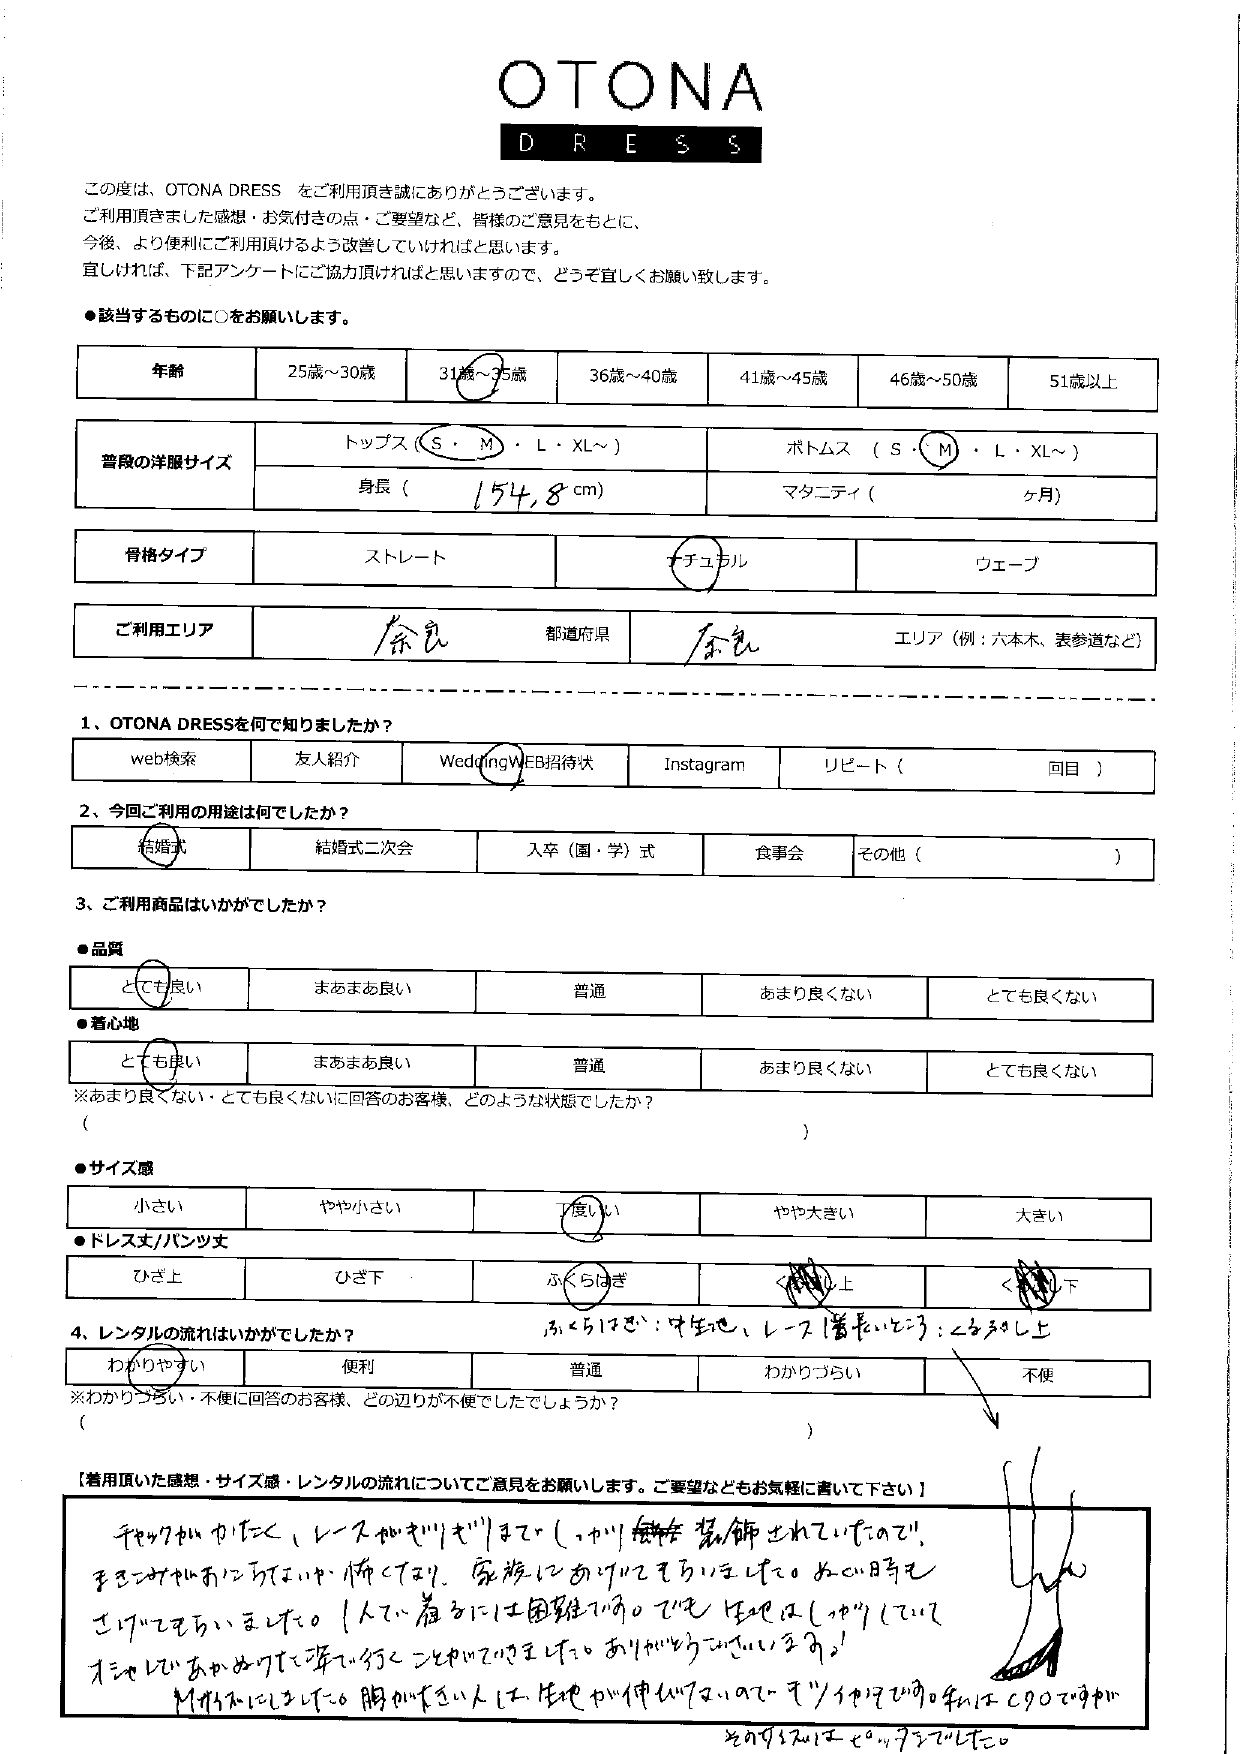 OTONA
DRESS
この度は、OTONA DRESS　をご利用頂き誠にありがとうございます。
ご利用頂きました感想・お気付きの点・ご要望など、皆様のご意見をもとに、
今後、より便利にご利用頂けるよう改善していければと思います。
宜しければ、下記アンケートにご協力頂ければと思いますので、どうぞ宜しくお願い致します。
●該当するものに○をお願いします。
年齢 25歳～30歳 31歳～35歳 36歳～40歳 41歳～45歳 46歳～50歳 51歳以上
普段の洋服サイズ トップス（S・M・L・XL～） ボトムス（S・M・L・XL～）
身長（154.8cm） マタニティ（ ヶ月）
骨格タイプ ストレート ナチュラル ウェーブ
ご利用エリア 奈良 都道府県 奈良 エリア（例：六本木、表参道など）
1、OTONA DRESSを何で知りましたか？
web検索 友人紹介 WeddingWEB招待状 Instagram リピート（ 回目 ）
2、今回ご利用の用途は何でしたか？
結婚式 結婚式二次会 入卒（園・学）式 食事会 その他（ ）
3、ご利用商品はいかがでしたか？
●品質
とても良い まあまあ良い 普通 あまり良くない とても良くない
●着心地
とても良い まあまあ良い 普通 あまり良くない とても良くない
※あまり良くない・とても良くないに回答のお客様、どのような状態でしたか？
（ ）
●サイズ感
小さい やや小さい 丁度いい やや大きい 大きい
●ドレス丈/パンツ丈
ひざ上 ひざ下 ふくらはぎ くるぶし上 くるぶし下
ふくらはぎ：中生地、レース1番長いところ：くるぶし上
4、レンタルの流れはいかがでしたか？
わかりやすい 便利 普通 わかりづらい 不便
※わかりづらい・不便に回答のお客様、どの辺りが不便でしたでしょうか？
（ ）
【着用頂いた感想・サイズ感・レンタルの流れについてご意見をお願いします。ご要望などもお気軽に書いて下さい】
チャックがかたく、レースがギリギリまでしっかり装飾されていたので、
まきこみがおこらないか怖くなり、家族にあげてもらいました。ぬぐ時も
さげてもらいました。1人で着るには困難です。でも生地はしっかりしていて
オシャレであかぬけた姿で行くことができました。ありがとうございます！
Mサイズにしました。胸が大きい人は、生地が伸びてないのでキツイかもです。私はC70ですが
そのサイズはピッタシでした。